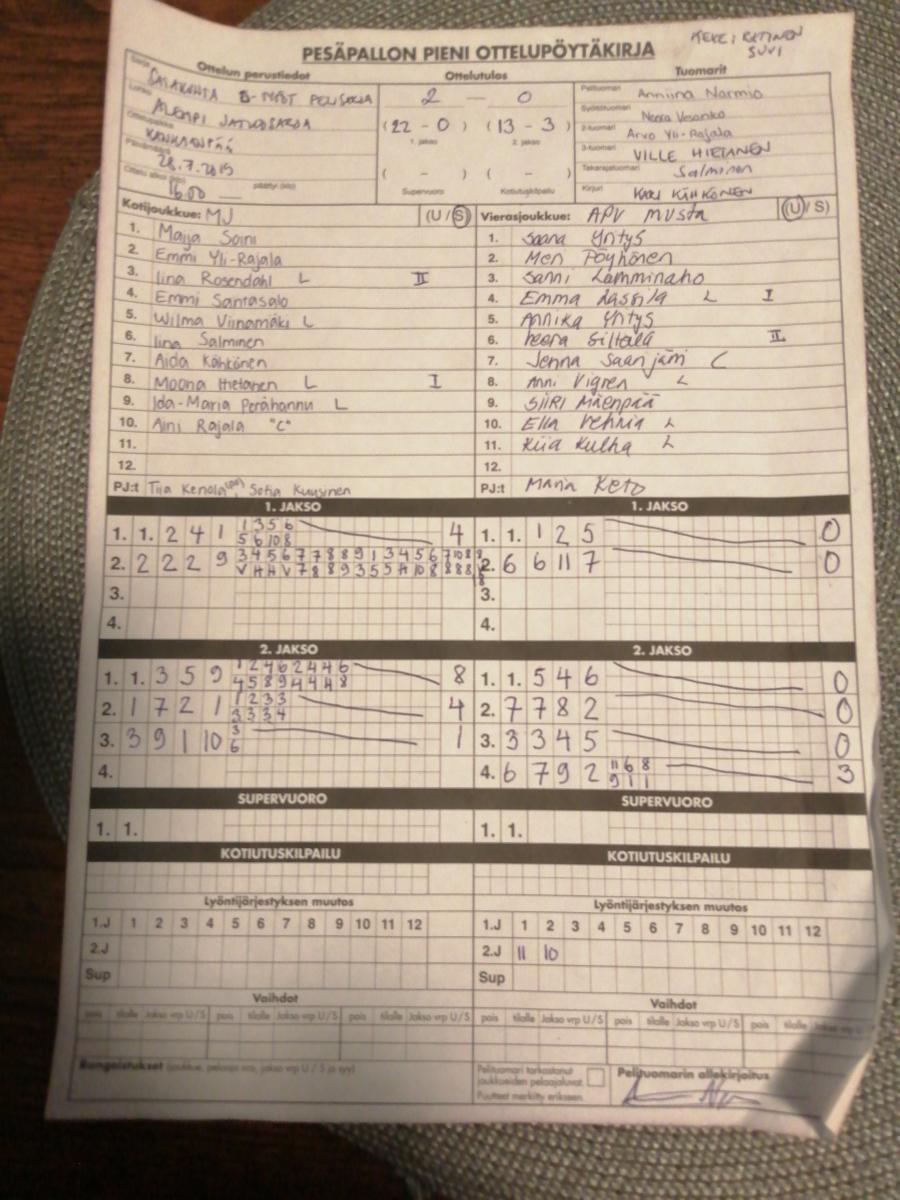 PESÄPALLON PIENI OTTELUPÖYTÄKIRJA
SUVI
Ottelun perustiedot
Ottelutulos
Tuomarit
SATAKUNTA B-TYTÖT PERUSSARJA
ALEMPI JATKOSARJA
KANKAANPÄÄ
28.7.2015
16.00
2 — 0
(22 - 0) (13 - 3)
1. jakso 2. jakso
( - ) ( - )
Supervuoro Kotiutuskilpailu
Pelituomari Anniina Narmio
Syöttötuomari Neera Vesanko
2-tuomari Arvo Yli-Rajala
3-tuomari VILLE HIETANEN
Takarajatuomari Salminen
Kirjuri KARI KÄHKÖNEN
Kotijoukkue: MJ (U/S)
1. Maija Soini
2. Emmi Yli-Rajala
3. Iina Rosendahl L II
4. Emmi Santasalo
5. Wilma Viinamäki L
6. Iina Salminen
7. Aida Kähkönen
8. Moona Hietanen L I
9. Ida-Maria Perähannu L
10. Aini Rajala "C"
11.
12.
PJ:t Tiia Kenola, Sofia Kuusinen
Vierasjoukkue: APV Musta (U/S)
1. Saana Yritys
2. Meri Pöyhönen
3. Sanni Lamminaho
4. Emma Lassila L I
5. Annika Yritys
6. Veera Siltala II
7. Jenna Saarijärvi C
8. Anni Vigren L
9. SIIRI Mäenpää
10. Ella L
11. Kiia Kulha L
12.
PJ:t Maria Keto
1. JAKSO
1. 1. 2 4 1 1 3 5 6 4
5 6 10 8
2. 2 2 2 9 3 4 5 6 7 7 8 8 9 1 3 4 5 6 7 10 8
3.
4.
1. JAKSO
1. 1. 1 2 5 0
2. 6 6 11 7 0
3.
4.
2. JAKSO
1. 1. 3 5 9 1 2 4 6 2 4 4 6 8
4 5 8 9 4 4 4 8
2. 1 7 2 1 1 2 3 3 4
3 3 3 4
3. 3 9 1 10 3 1
6
4.
2. JAKSO
1. 1. 5 4 6 0
2. 7 7 8 2 0
3. 3 3 4 5 0
4. 6 7 9 2 11 6 8 3
9 1 1
SUPERVUORO
1. 1.
SUPERVUORO
1. 1.
KOTIUTUSKILPAILU
KOTIUTUSKILPAILU
Lyöntijärjestyksen muutos
1.J 1 2 3 4 5 6 7 8 9 10 11 12
2.J
Sup
Lyöntijärjestyksen muutos
1.J 1 2 3 4 5 6 7 8 9 10 11 12
2.J 11 10
Sup
Vaihdot
pois tilalle Jakso vrp U/S pois tilalle Jakso vrp U/S pois tilalle Jakso vrp U/S
Vaihdot
pois tilalle Jakso vrp U/S pois tilalle Jakso vrp U/S pois tilalle Jakso vrp U/S
Rangaistukset (joukkue, pelaaja nro, jakso vrp U / S ja syy)
Pelituomari tarkastanut
joukkueiden pelaajaluvat.
Puutteet merkitty erikseen.
Pelituomarin allekirjoitus